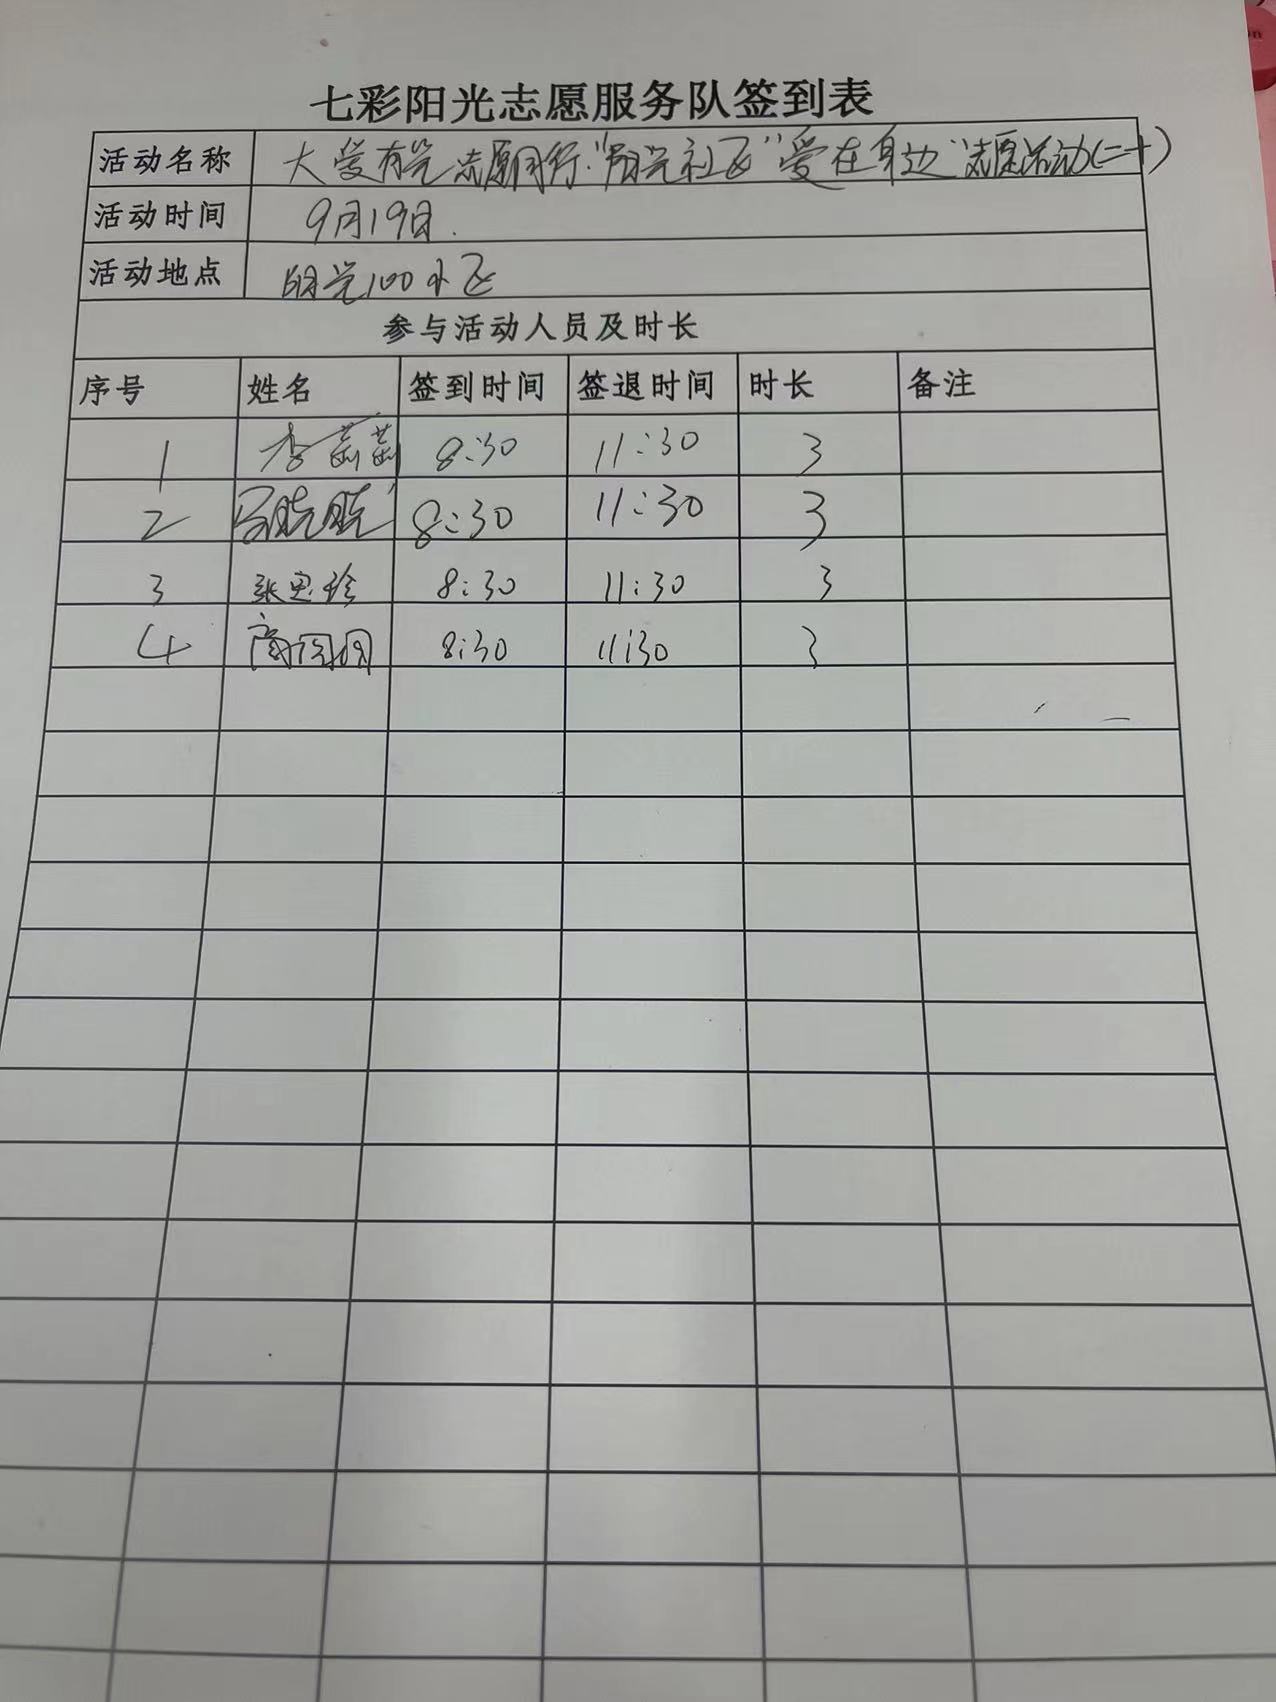 七彩阳光志愿服务队签到表
活动名称 大爱有光 志愿同行:"阳光社区"爱在身边"志愿活动(二十)
活动时间 9月19日.
活动地点 阳光100小区
参与活动人员及时长
序号 姓名 签到时间 签退时间 时长 备注
1 李茜茜 8:30 11:30 3
2 马晓晓 8:30 11:30 3
3 张思玲 8:30 11:30 3
4 8:30 11:30 3